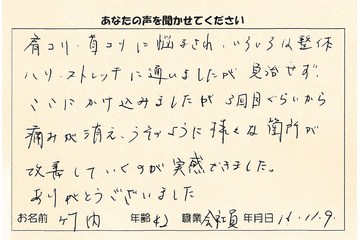 あなたの声を聞かせてください
肩コリ・首コリに悩まされ、いろいろな整体
ハリ・ストレッチに通いましたが 完治せず、
ここにかけ込みましたが 3回目ぐらいから
痛みが消え、うそのように様々な箇所が
改善していくのが実感できました。
ありがとうございました
お名前 竹内 年齢 42 職業 会社員 年月日 16.11.9.